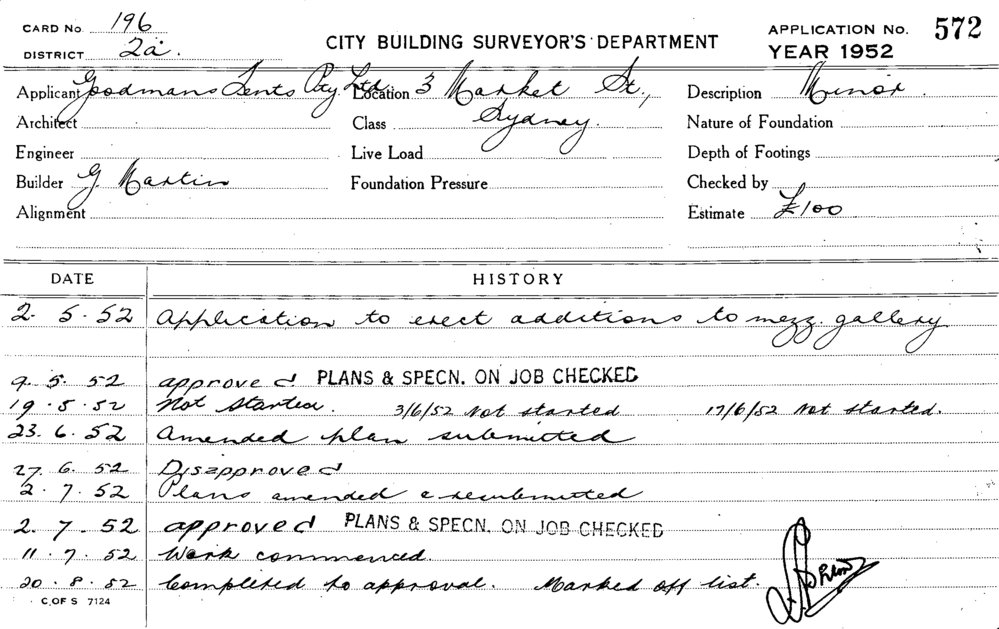 CARD No. 196
DISTRICT 2a.
CITY BUILDING SURVEYOR'S DEPARTMENT
APPLICATION No. 572
YEAR 1952
Applicant Goodmans Tents Pty Ltd Location 3 Market St., Description Minor.
Architect Class Sydney. Nature of Foundation
Engineer Live Load Depth of Footings
Builder G. Martin Foundation Pressure Checked by
Alignment Estimate £100
DATE HISTORY
2. 5. 52 Application to erect additions to mezz. gallery
9. 5. 52 approved PLANS & SPECN. ON JOB CHECKED
19. 5. 52 Not started. 3/6/52 Not started 17/6/52 Not started.
23. 6. 52 Amended plan submitted
27. 6. 52 Disapproved
2. 7. 52 Plans amended & resubmitted
2. 7. 52 approved PLANS & SPECN. ON JOB CHECKED
11. 7. 52 Work commenced.
20. 8. 52 Completed to approval. Marked off list.
C. OF S 7124